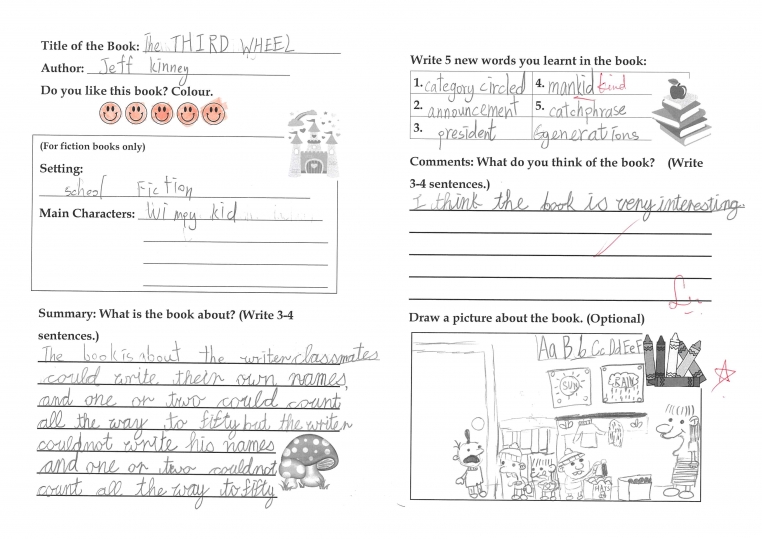 Title of the Book: The THIRD WHEEL
Author: Jeff Kinney
Do you like this book? Colour.
(For fiction books only)
Setting:
school Fiction
Main Characters: Wimpy kid
Summary: What is the book about? (Write 3-4
sentences.)
The book is about the writer classmates
could write their own names,
and one or two could count
all the way to fifty but the writer
couldnot write his names
and one or two couldnot
count all the way to fifty
Write 5 new words you learnt in the book:
1. category circled 4. mankid kind
2. announcement 5. catchphrase
3. president 6generations
Comments: What do you think of the book? (Write
3-4 sentences.)
I think the book is very interesting.
Draw a picture about the book. (Optional)
Aa Bb Cc Dd Ee F
SUN
RAIN
HATS